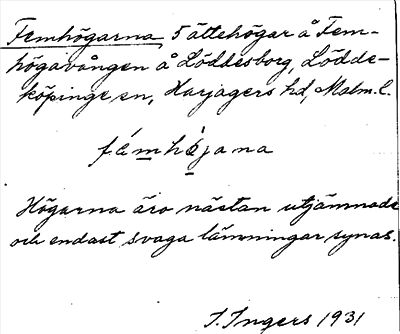 Femhögarna, 5 ättehögar å Fem-
högavången å Löddesborg, Lödde-
köpinge sn, Harjagers hd, Malm. l.
fǽmhö̀jana
Högarna äro nästan utjämnade
och endast svaga lämningar synas.
I. Ingers 1931